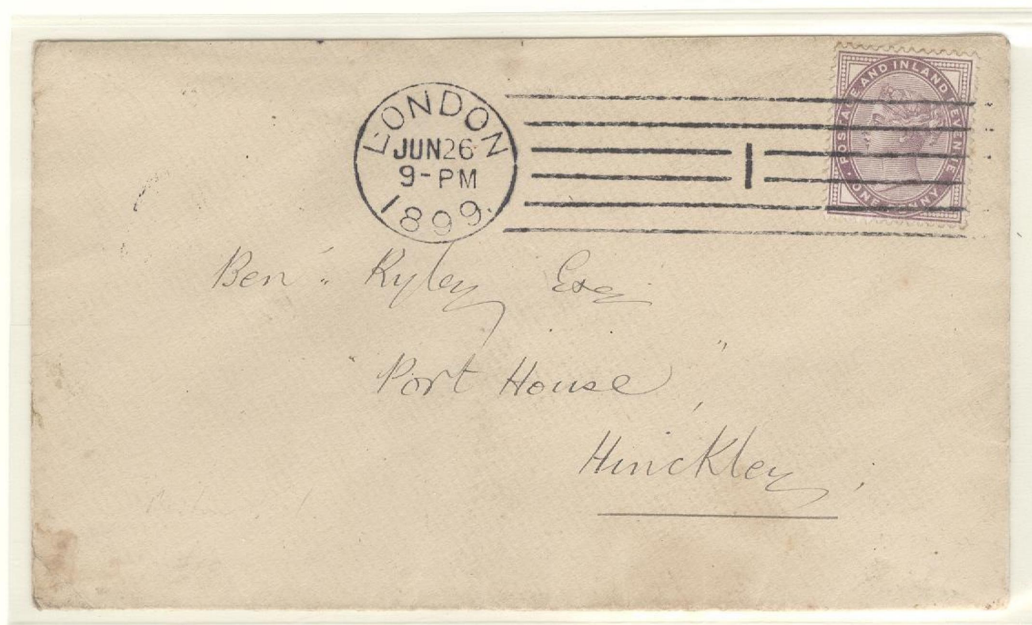 LONDON
JUN 26
9-PM
1899.
1
POSTAGE AND INLAND REVENUE
ONE PENNY
Ben " Ryley Esq
" Port House, "
Hinckley,